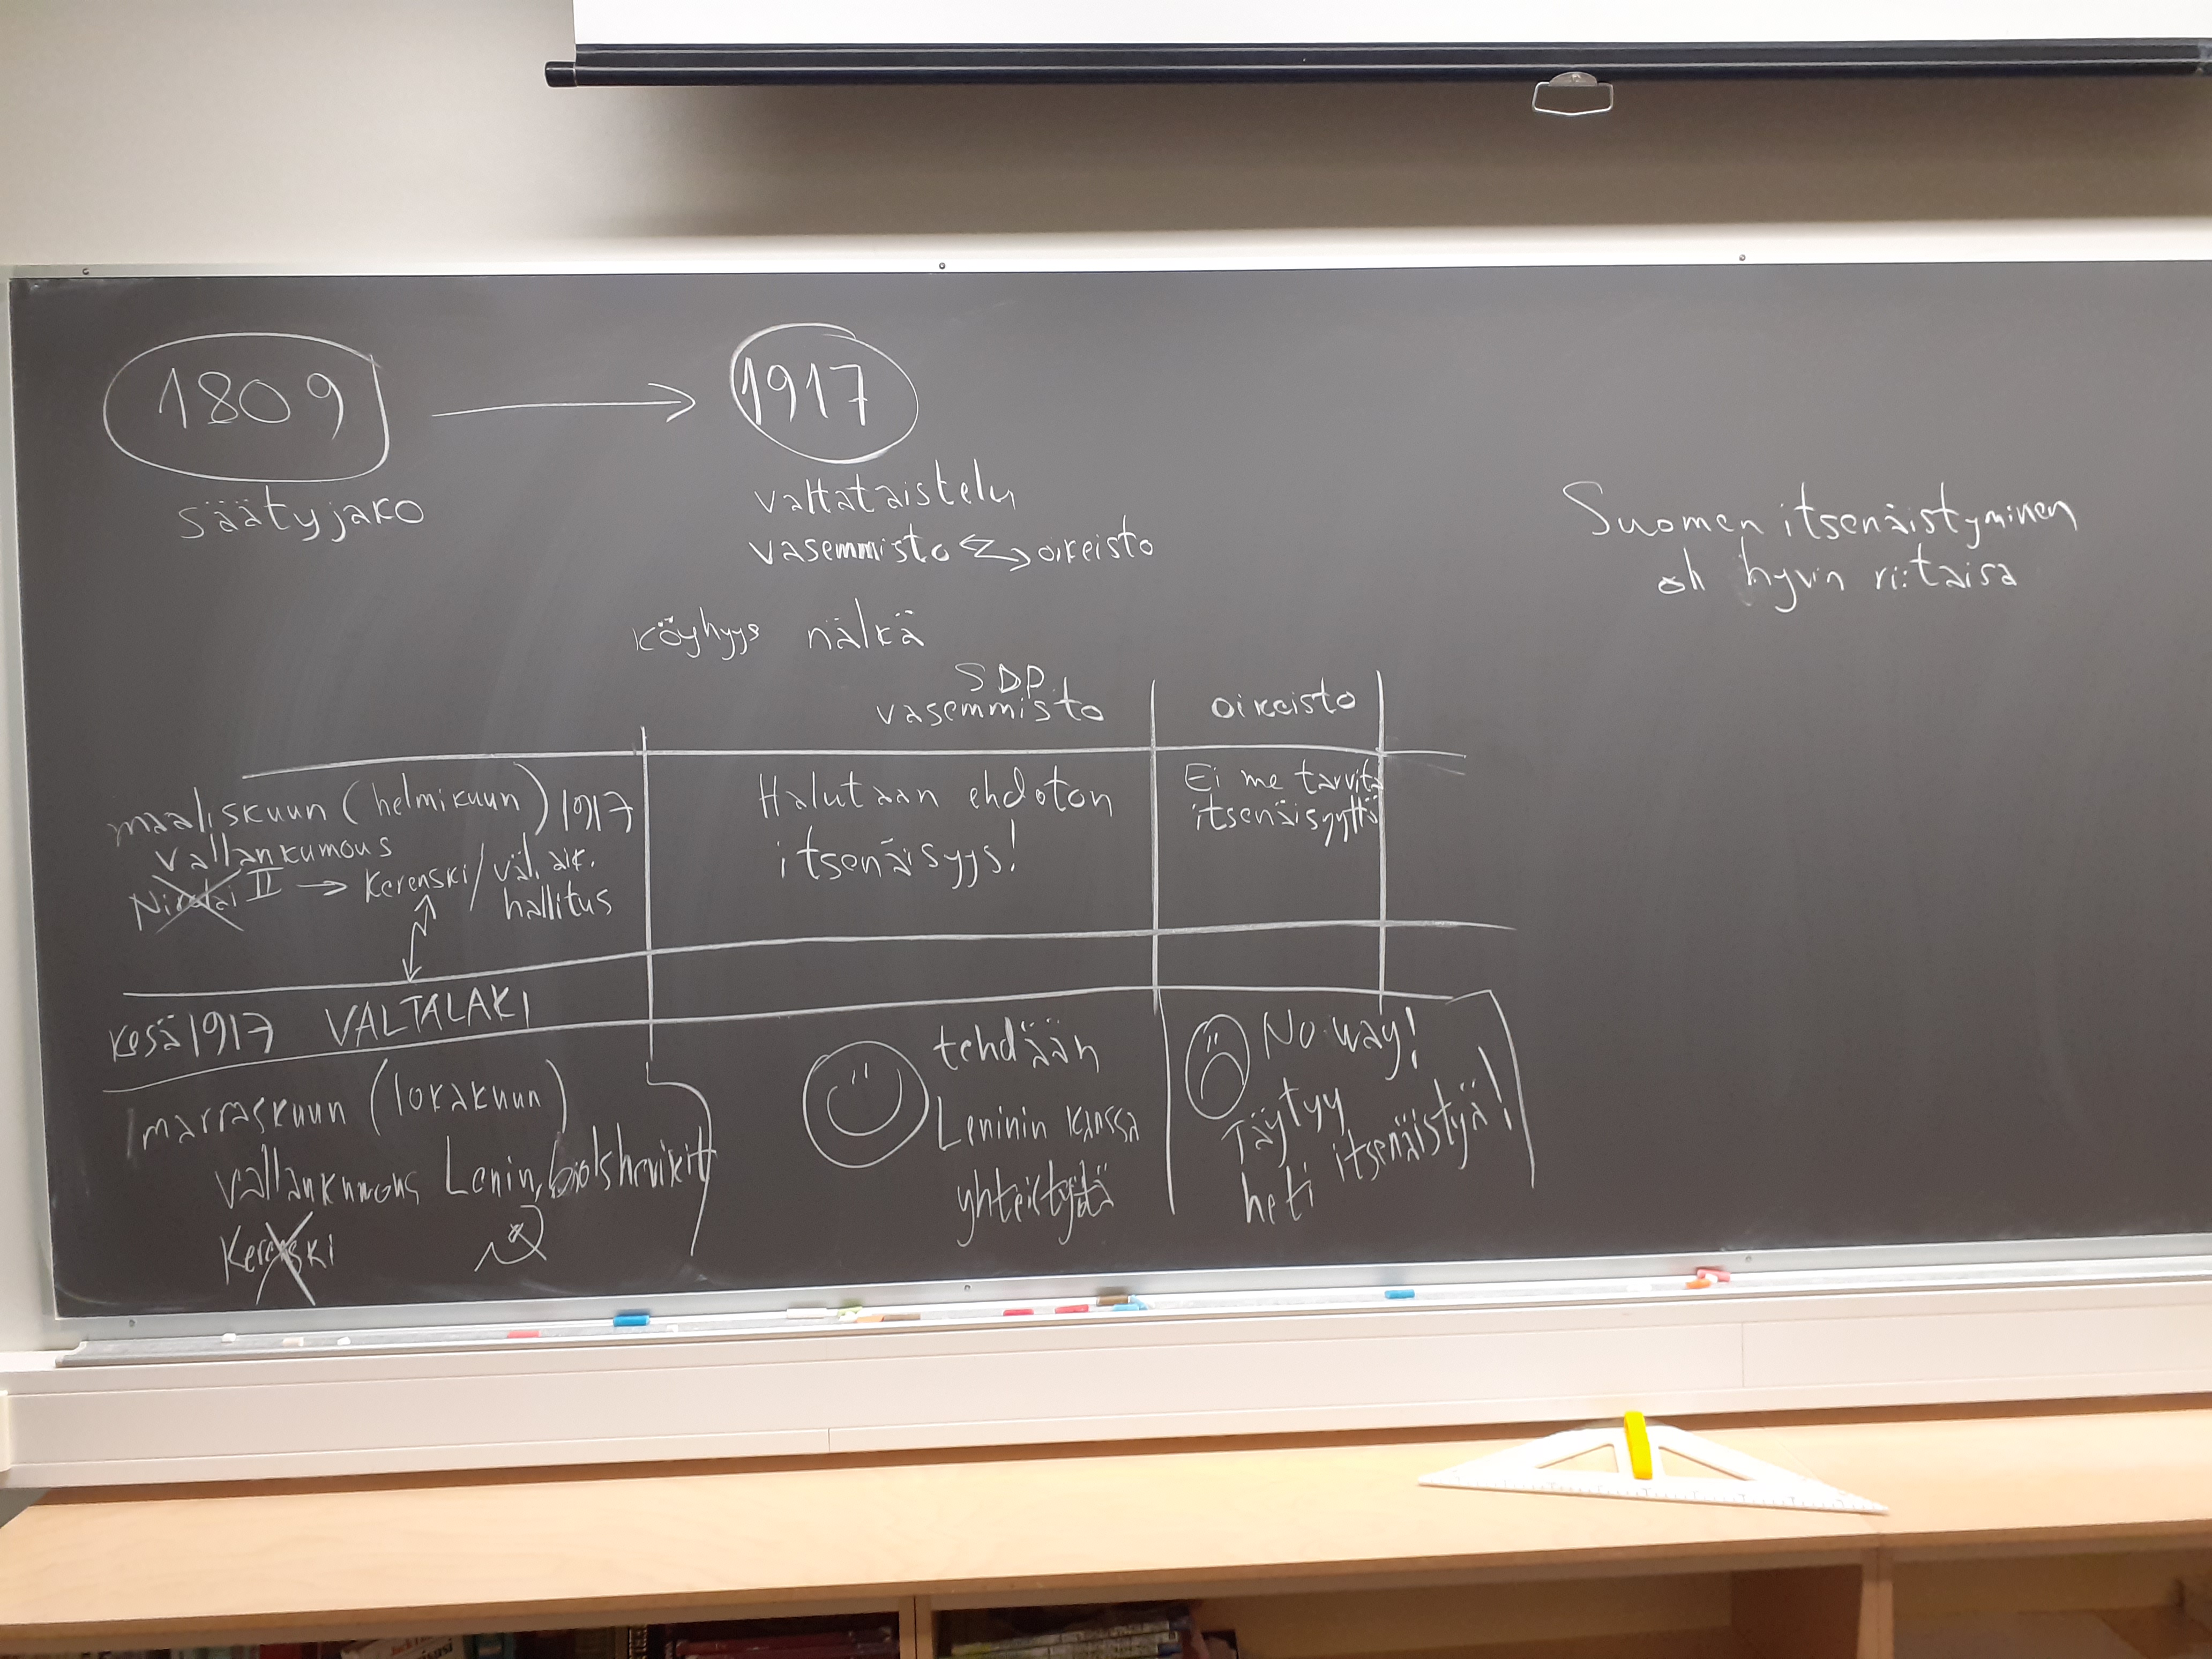 1809 → 1917
säätyjako
valtataistelu
vasemmisto ↔ oikeisto
köyhyys nälkä
Suomen itsenäistyminen
oli hyvin riitaisa
SDP
vasemmisto
oikeisto
maaliskuun (helmikuun) 1917
vallankumous
Nikolai II → Kerenski / väl. aik.
hallitus
Halutaan ehdoton
itsenäisyys!
Ei me tarvita
itsenäisyyttä
kesä 1917 VALTALAKI
marraskuun (lokakuun)
vallankumous Lenin, bolshevikit
Kerenski
tehdään
Leninin kanssa
yhteistyötä
No way!
Täytyy
heti itsenäistyä!